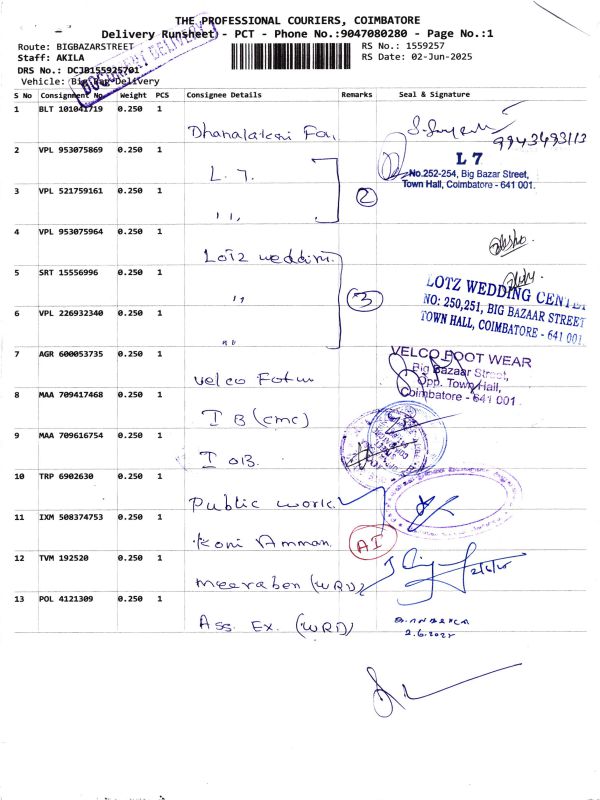 THE PROFESSIONAL COURIERS, COIMBATORE
Delivery Runsheet - PCT - Phone No.:9047080280 - Page No.:1
Route: BIGBAZARSTREET
RS No.: 1559257
Staff: AKILA
RS Date: 02-Jun-2025
DRS No.: DCJB155925701
Vehicle: Big Bag Delivery
DOCUMENT DELIVERY
S No Consignment No. Weight PCS Consignee Details Remarks Seal & Signature
1 BLT 101041719 0.250 1
9943493113
2 VPL 953075869 0.250 1 L. 7.
L 7
No.252-254, Big Bazar Street,
Town Hall, Coimbatore - 641 001.
3 VPL 521759161 0.250 1 ,, 2
4 VPL 953075964 0.250 1 Lotz wedding
5 SRT 15556996 0.250 1 ,, 3
LOTZ WEDDING CENTER
NO: 250,251, BIG BAZAAR STREET
TOWN HALL, COIMBATORE - 641 001.
6 VPL 226932340 0.250 1 ,,
7 AGR 600053735 0.250 1 Velco
VELCO FOOT WEAR
Big Bazaar Street,
Opp. Town Hall,
Coimbatore - 641 001.
8 MAA 709417468 0.250 1 I B (CMC)
9 MAA 709616754 0.250 1 I OB.
10 TRP 6902630 0.250 1 Public work
11 IXM 508374753 0.250 1 Koni Amman AI
12 TVM 192520 0.250 1 Meeraben (WRD)
2/6/25
13 POL 4121309 0.250 1 Ass. Ex. (WRD)
2.6.2025